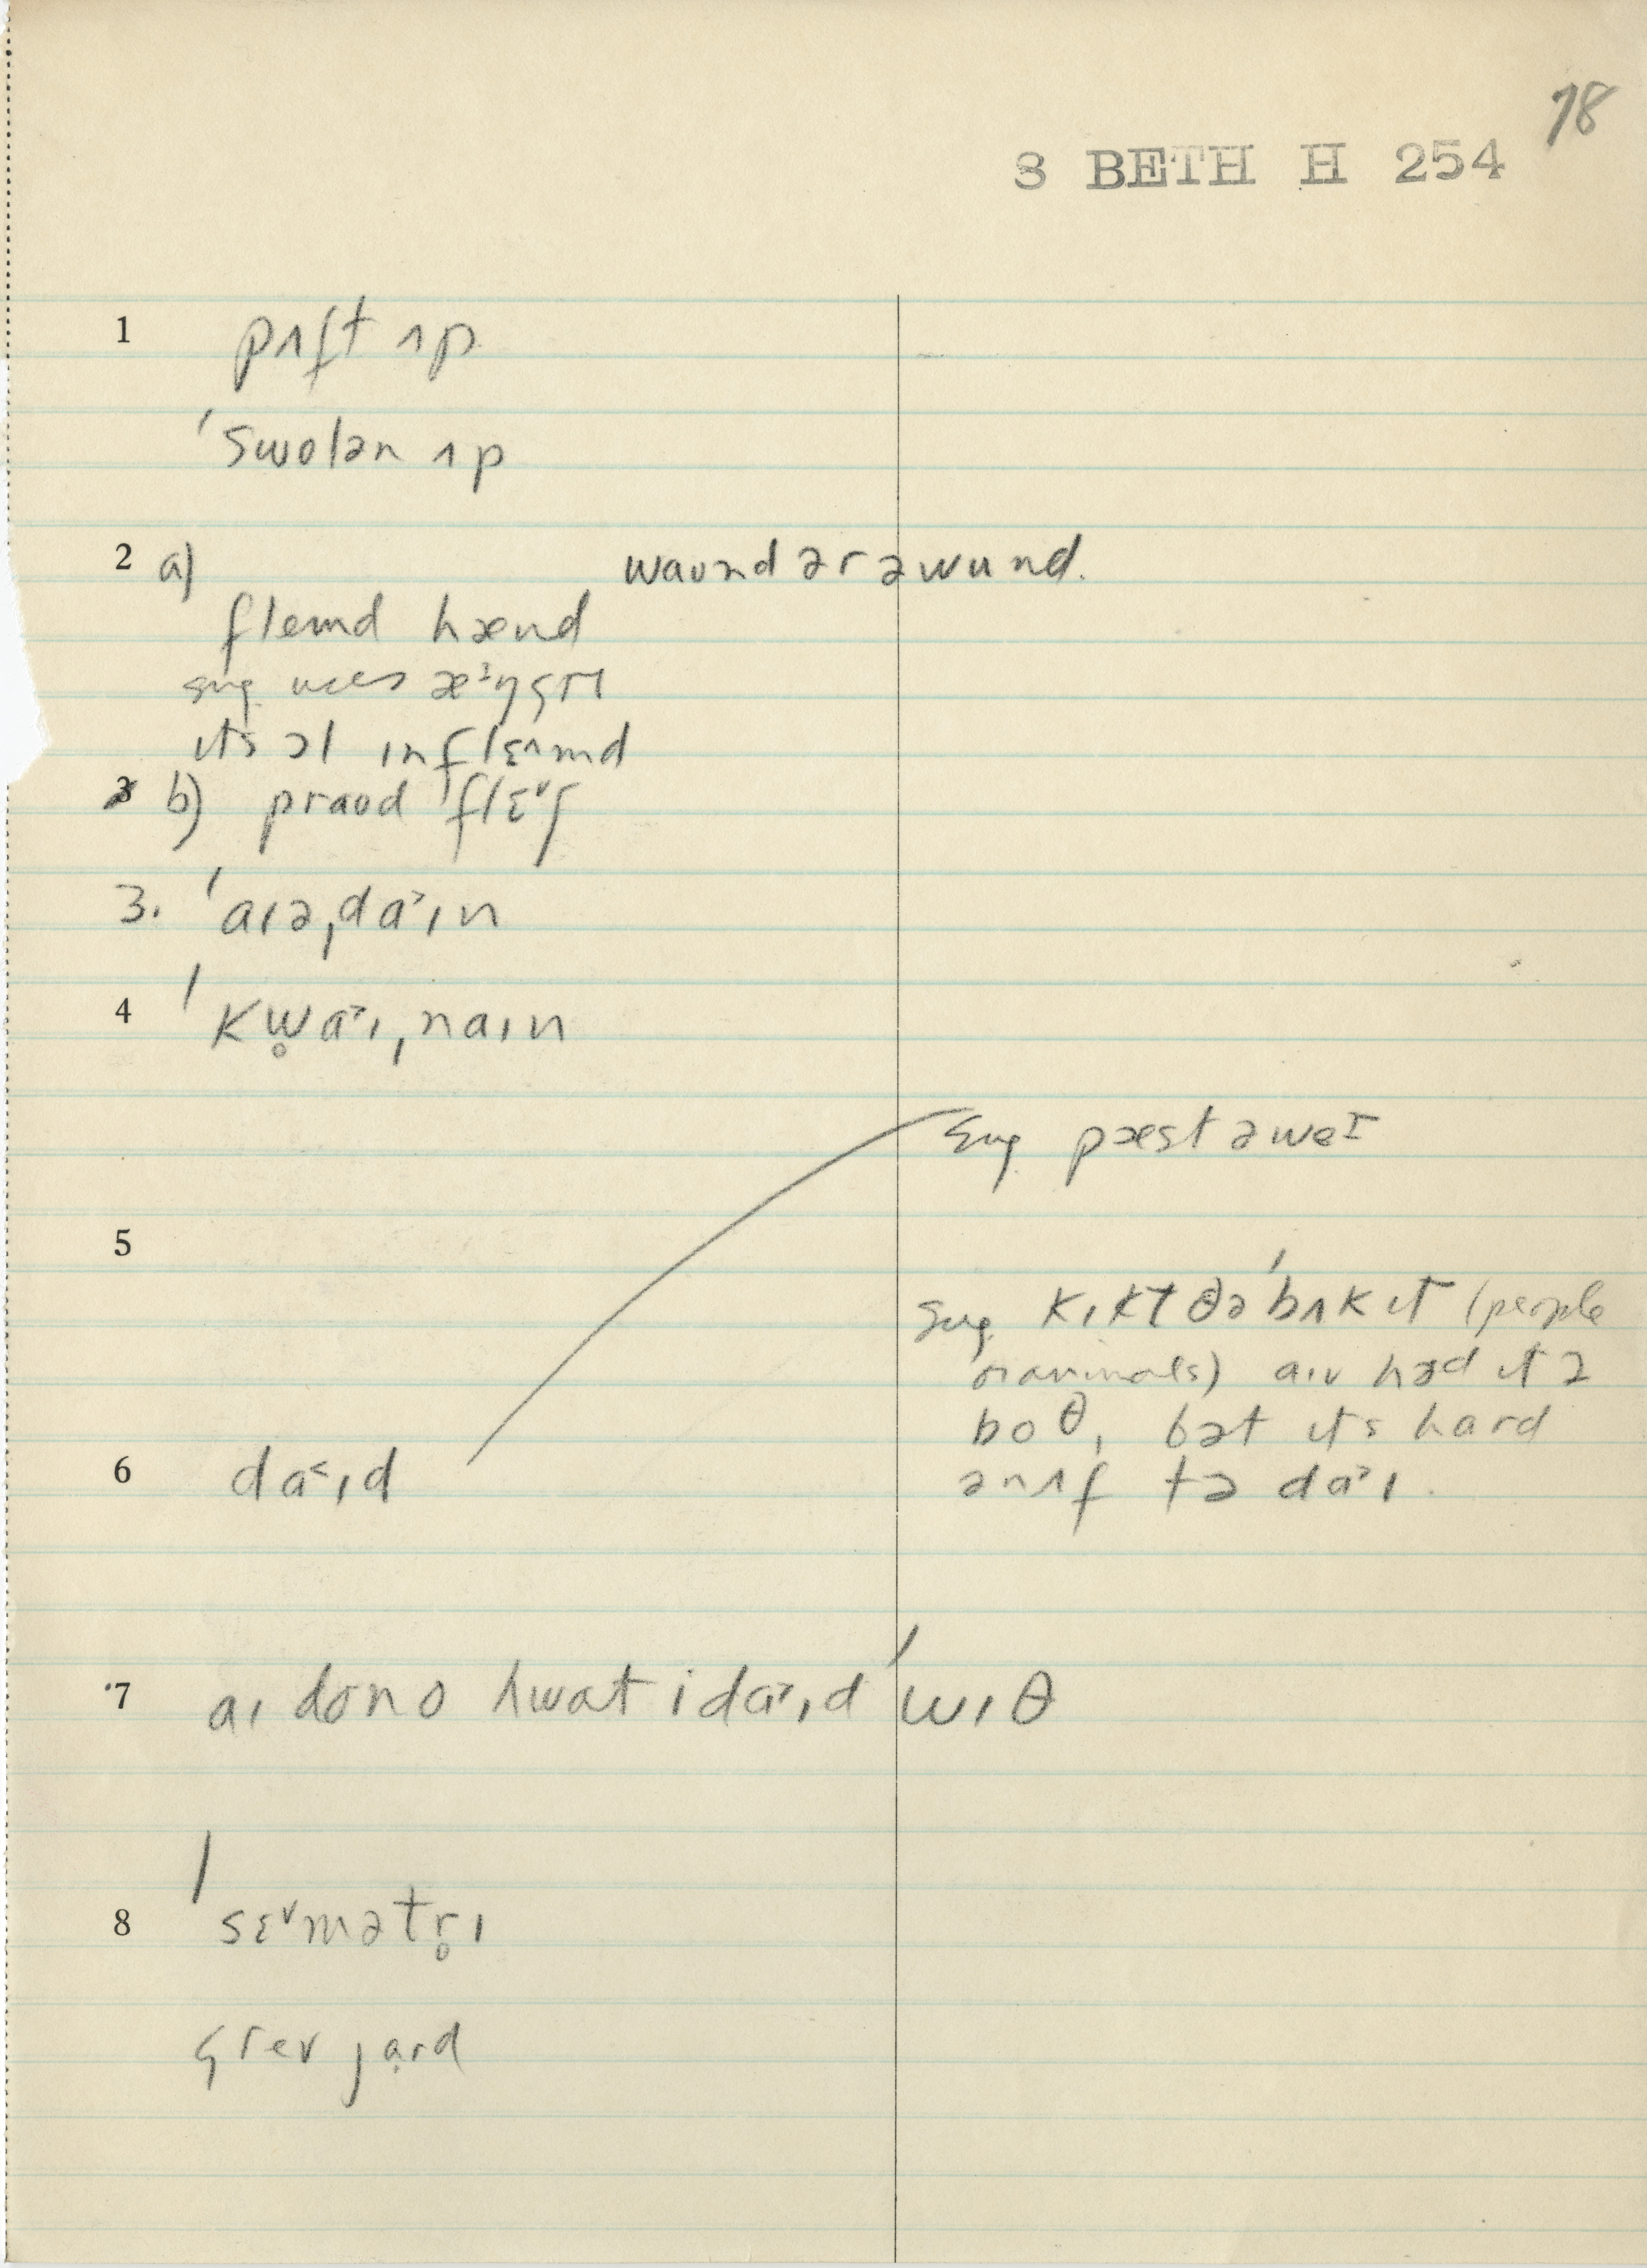 78
3 BETH H 254
1 pʌft ʌp
ˈswolən ʌp
2 a) waʊnd ər ə wund.
flemd hænd
sug. uses æ˃ŋgrɪ
ɪts ɔl ɪnflɛ^md
b) praʊd flɛ˅ʃ
3. ˈaɪəˌda˃ɪn
4 ˈkw̥a˃ɪˌnaɪn
Sug. pæst əweɪ
5
Sug. kɪkt ðəˈbʌkɪt (people
or animals) aɪv həd ɪt ə
boθ, bət ɪts hard
ənʌf tə da˃ɪ.
6 da˂ɪd
7 aɪ dono hwat i da˃ɪd ˈwɪθ
8 ˈsɛ˅mətr̥ɪ
grev jạrd